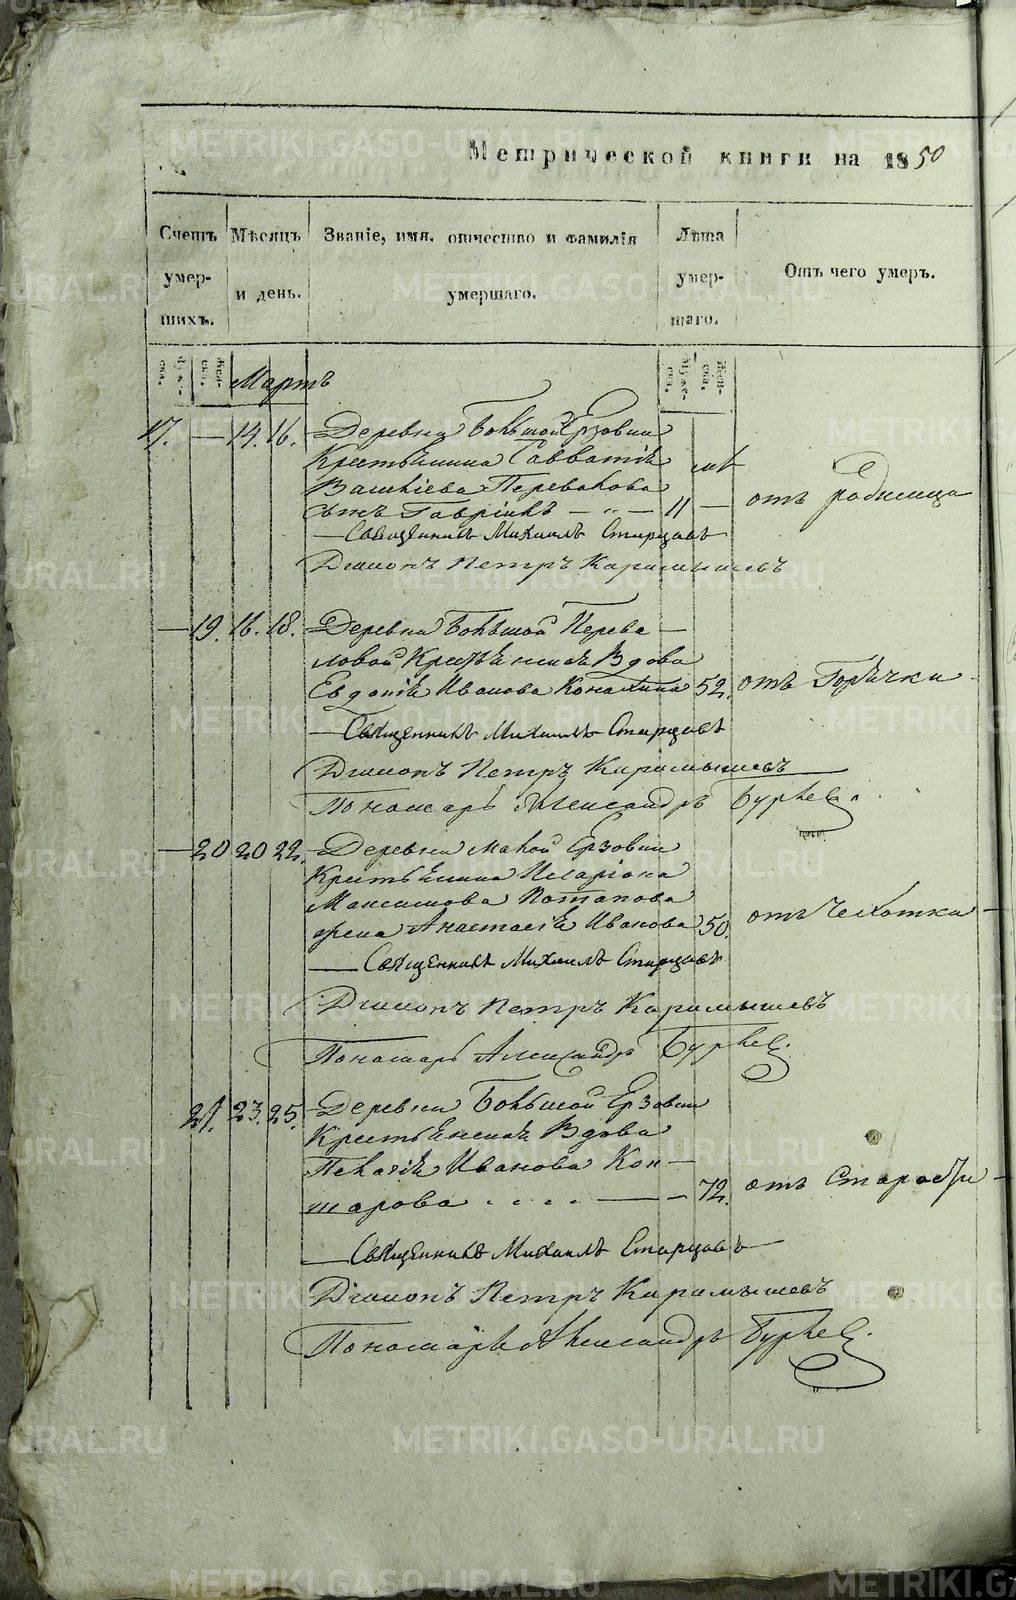 Метрической книги на 1850
Счетъ умершихъ.
Мѣсяцъ и день.
Званіе, имя, отчество и фамилія умершаго.
Лѣта умершаго.
Отъ чего умеръ.
Мартъ
17. — 14. 16. Деревни Большой Ерзовки
Крестьянина Савватія
мѣ
Перевалова
сынъ Гавріилъ — „ — 11 — отъ родимца
Священникъ Михаилъ Старцовъ
Діаконъ Петръ Карамышевъ
— 19. 16. 18. Деревни Большой Перева
ловой Крестьянская Вдова
Евдокія Иванова Конахина 52. отъ Горячки
Священникъ Михаилъ Старцовъ
Діаконъ Петръ Карамышевъ
Пономарь Александръ
— 20 20 22. Деревни малой Ерзовки
Крестьянина Иларіона
Максимова Потапова
жена Анастасія Иванова 50. отъ Чехотки
Священникъ Михаилъ Старцовъ
Діаконъ Петръ Карамышевъ
Пономарь Александръ
21. 23. 25. Деревни Большой Ерзовки
Крестьянская Вдова
Пелагія Иванова Кон
тарова . . . . — 72. отъ Старости
Священникъ Михаилъ Старцовъ
Діаконъ Петръ Карамышевъ
Пономарь Александръ
METRIKI.GASO-URAL.RU